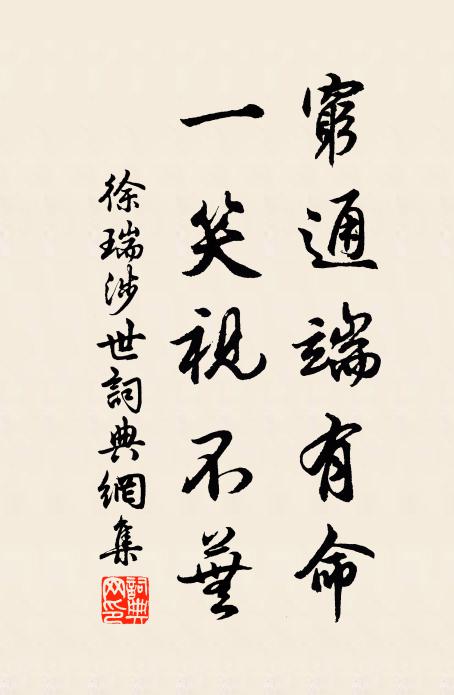 窮通端有命
一笑視不蕪
徐瑞涉世詞典網集
詞典網印